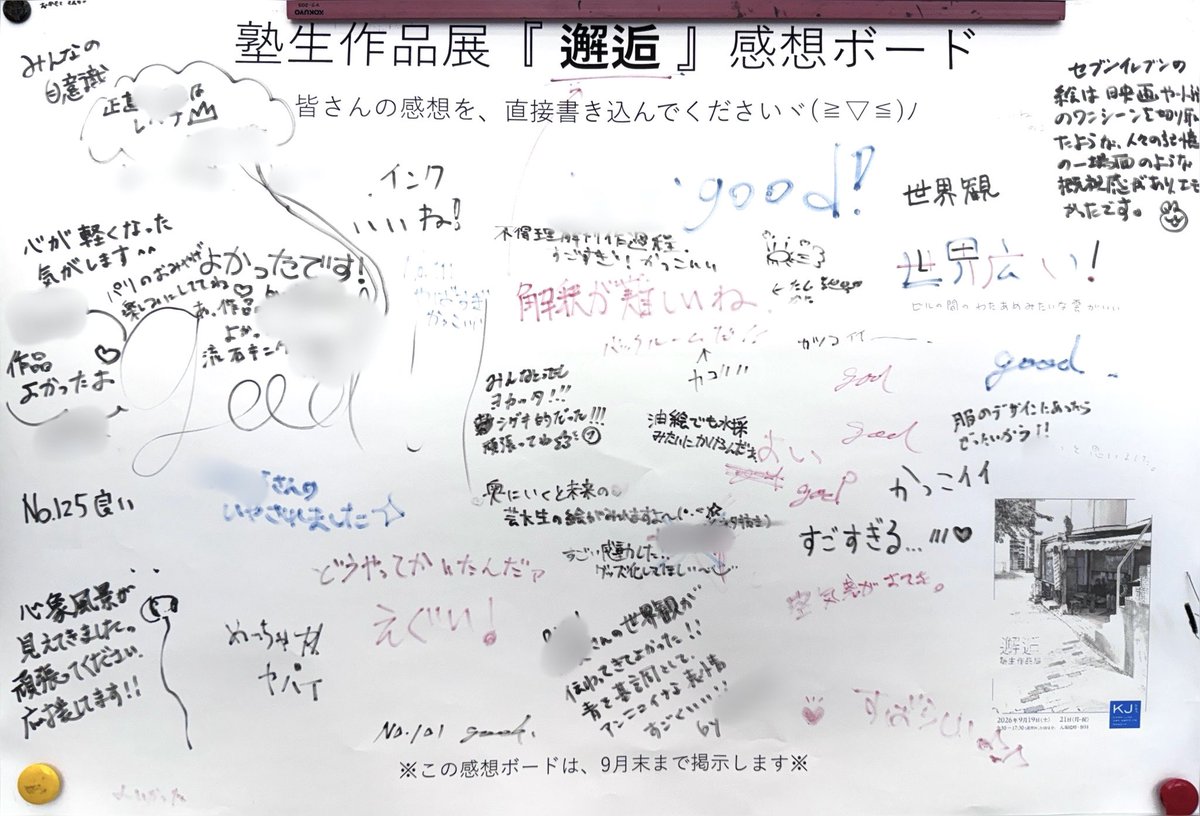 塾生作品展『 邂逅 』感想ボード
皆さんの感想を、直接書き込んでくださいヾ(≧▽≦)ノ
KOKUYO
みんなの
自意識
セブンイレブンの
絵は映画や
のワンシーンを切り取っ
たような、人々の記憶
の一場面のような
既視感がありエモ
かったです。
インク
いいね!
good!
世界観
世界広い!
ビルの間のわたあめみたいな雲がいい
心が軽くなった
気がします^^
パリのおみやげ
楽しみにしててね♡
よかったです!
あ、作品
よか
流石
すごすぎ!かっこいい
解釈が難しいね
バックルームだ!!
カッコイイー
作品♡
よかったよ
good
みんなとっても
ヨカッタ!!!
シゲキ的だった!!!
頑張ってね
油絵でも水採
みたいにかけるんだぁ
good
good
god
god
服のデザインにあったら
ぜったいかう!!
と思いました。
よい
god
かっこイイ
No.125 良い
さんの
いやされました
奥にいくと未来の
芸大生の絵がみれますよ〜
すごすぎる...〃♡
すごい感動した..
グッズ化してほしい〜
どうやってかいたんだァ
えぐい!
空気感がすてき。
心象風景が
見えてきましたっ
頑張ってください
応援してます!!
めっちゃ
ヤバイ
さんの世界観が
伝わってきてよかった!!
青を基調として、
アンニュイな表情
すごくいい!!
by
No.101 good.
すばらしい
邂逅
塾生作品展
2026年9月19日(土) 21日(月・祝)
KJ
※この感想ボードは、9月末まで掲示します※
よかった